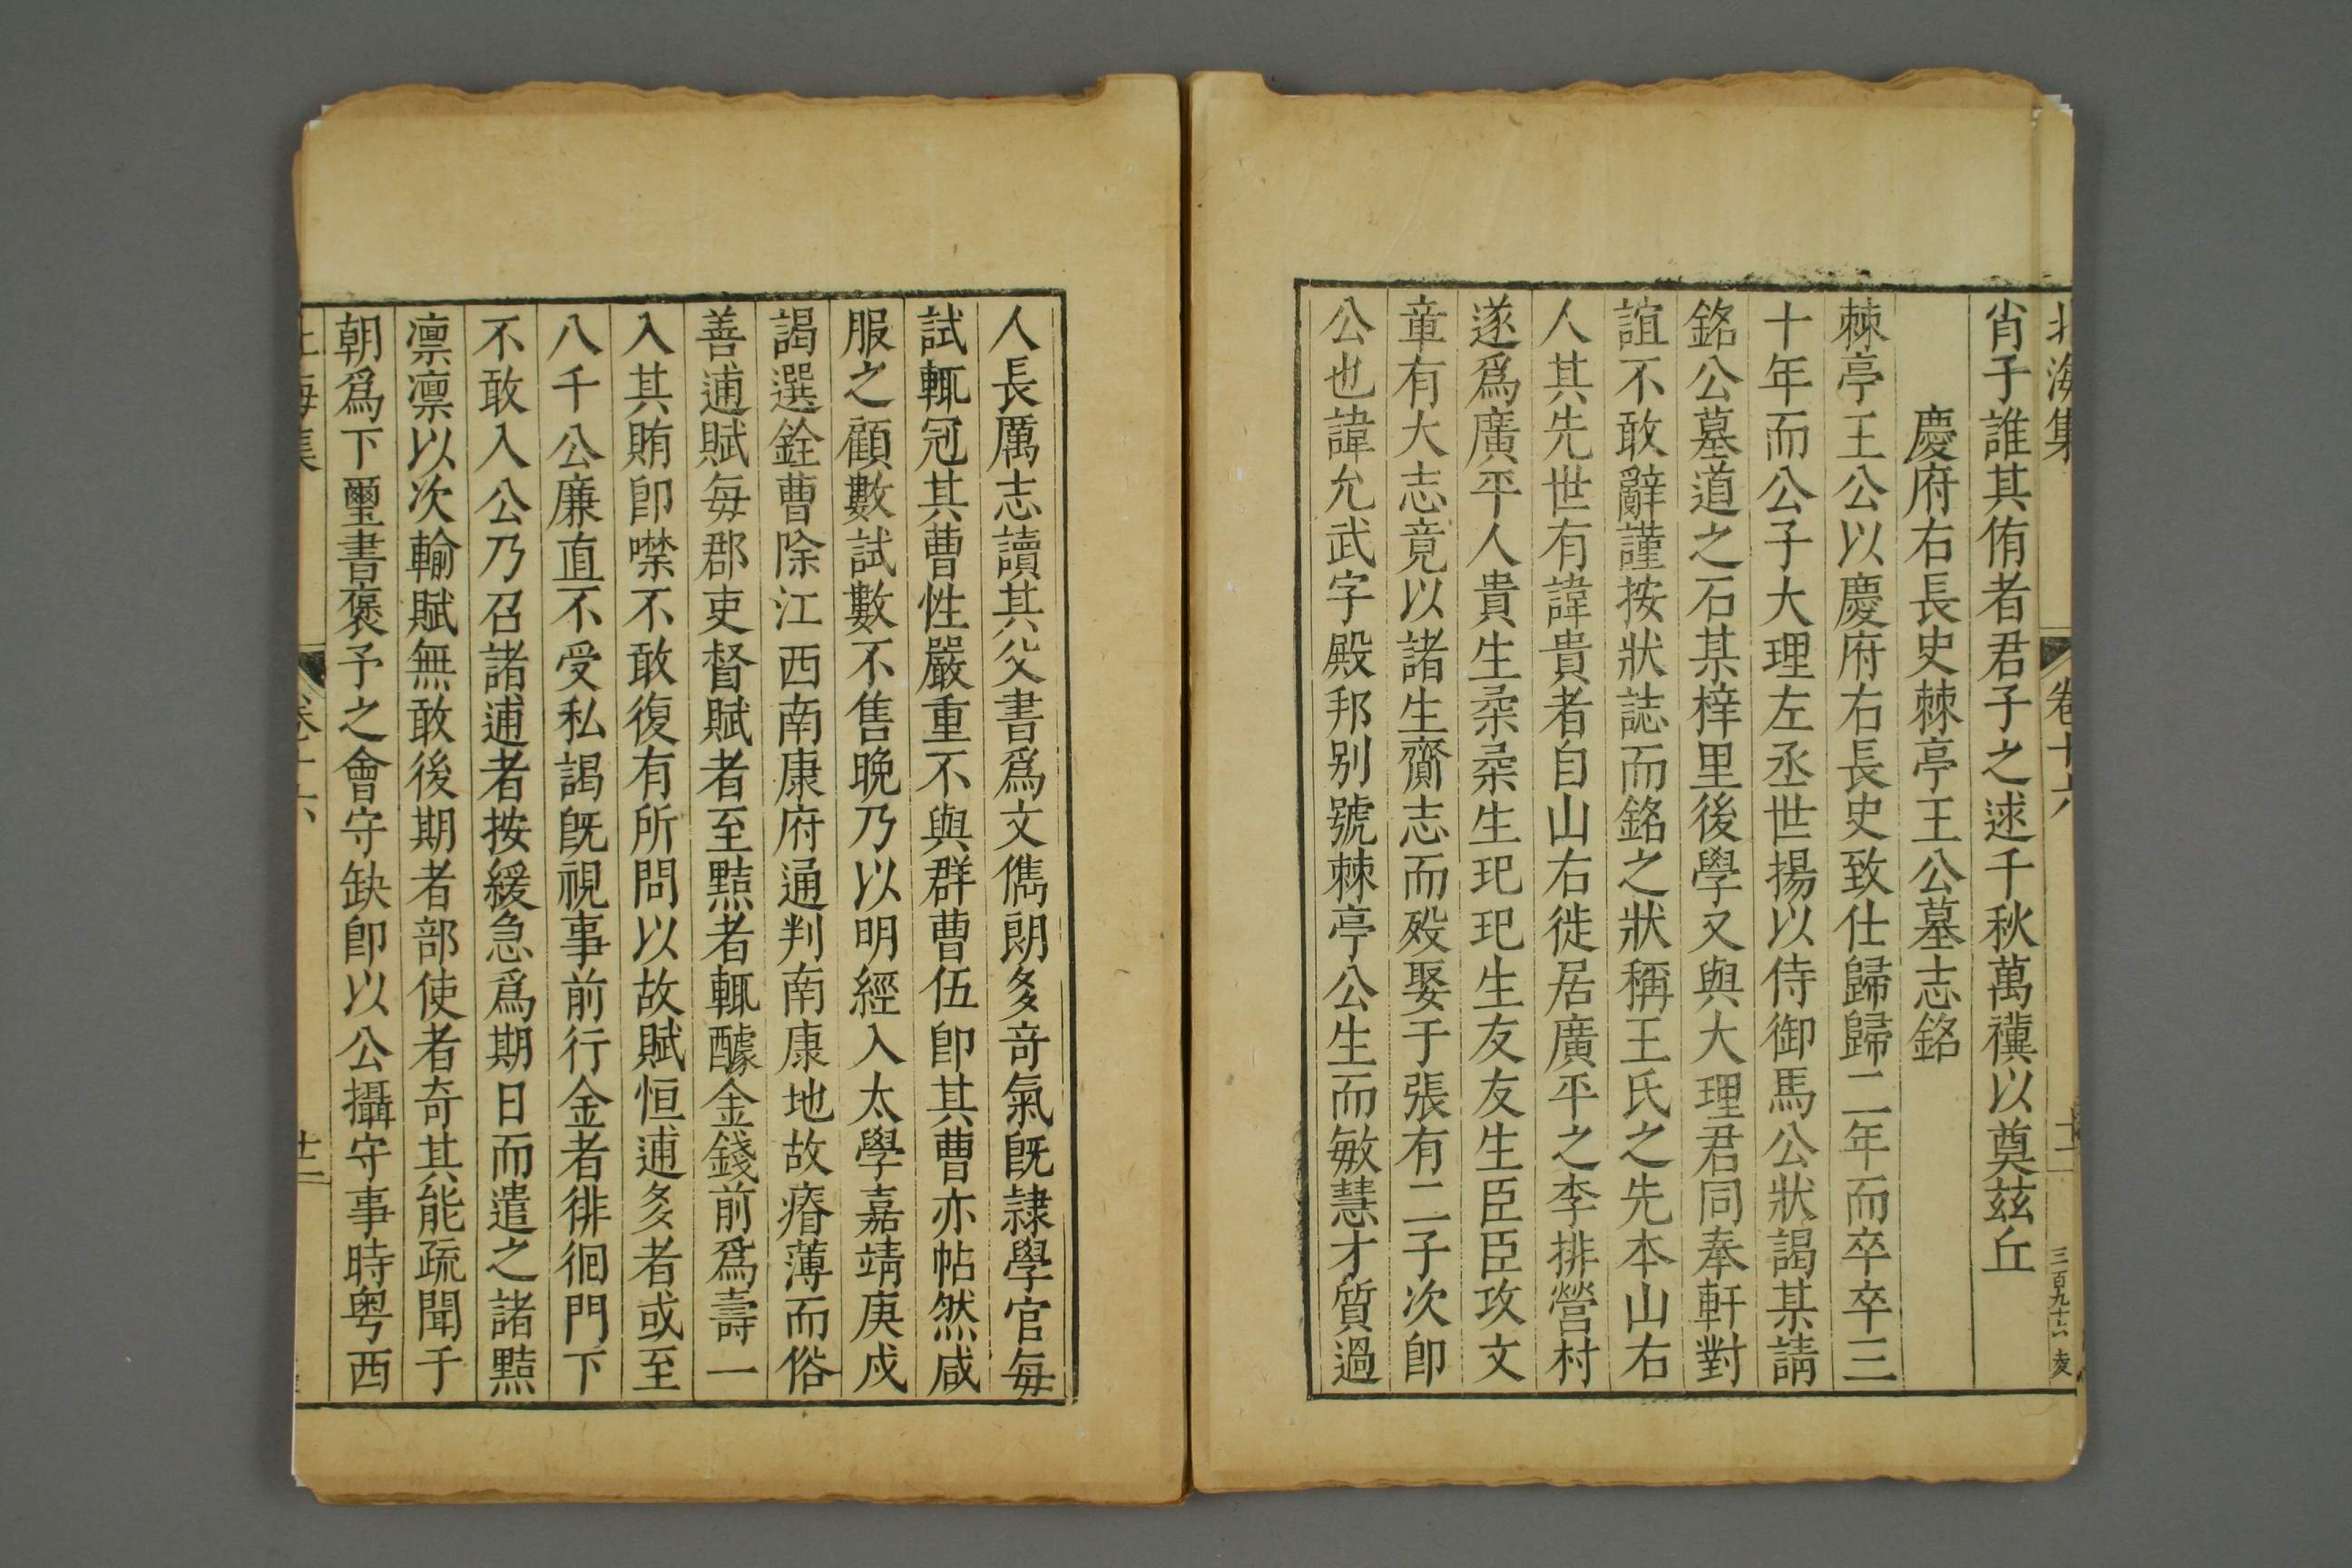 北海集 卷十六 十一 三百九十六
肖子誰其侑者君子之逑千秋萬禩以奠茲丘
慶府右長史棘亭王公墓志銘
棘亭王公以慶府右長史致仕歸歸二年而卒卒三
十年而公子大理左丞世揚以侍御馬公狀謁某請
銘公墓道之石某梓里後學又與大理君同奉軒對
誼不敢辭謹按狀誌而銘之狀稱王氏之先本山右
人其先世有諱貴者自山右徙居廣平之李排營村
遂爲廣平人貴生枀枀生玘玘生友友生臣臣攻文
章有大志竟以諸生齎志而歿娶于張有二子次卽
公也諱允武字殿邦别號棘亭公生而敏慧才質過
人長厲志讀其父書爲文儁朗多竒氣旣隷學官每
試輒冠其曹性嚴重不與群曹伍卽其曹亦帖然咸
服之顧數試數不售晩乃以明經入太學嘉靖庚戍
謁選銓曹除江西南康府通判南康地故瘠薄而俗
善逋賦每郡吏督賦者至黠者輒醵金錢前爲壽一
入其賄卽噤不敢復有所問以故賦恒逋多者或至
八千公廉直不受私謁旣視事前行金者徘徊門下
不敢入公乃召諸逋者按緩急爲期日而遣之諸黠
凛凛以次輸賦無敢後期者部使者奇其能疏聞于
朝爲下璽書褒予之會守缺卽以公攝守事時粤西
北海集 卷十六 十二